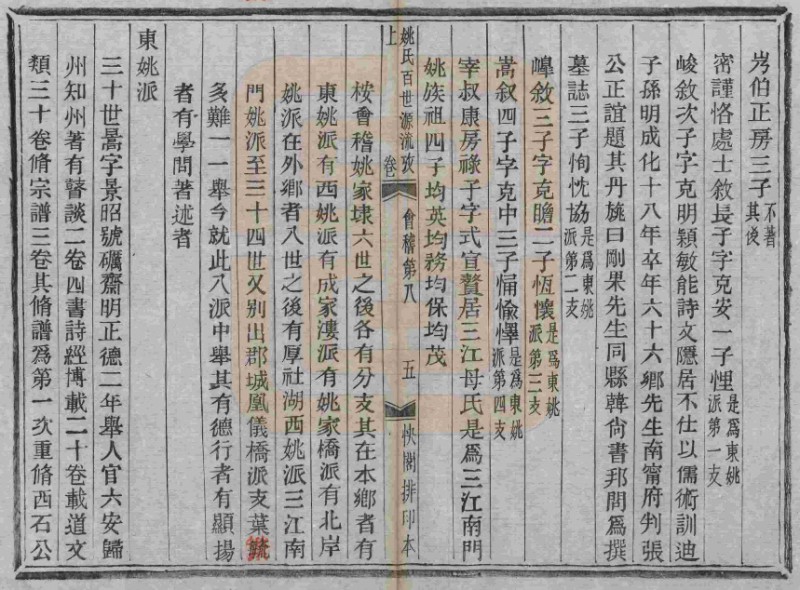 岁伯正房三子不著其後
密謹恪處士敘長子字克安一子悝是爲東姚派第一支
峻敘次子字克明穎敏能詩文隱居不仕以儒術訓迪
子孫明成化十八年卒年六十六鄉先生南甯府判張
公正誼題其丹旐曰剛果先生同縣韓尙書邦問爲撰
墓誌三子恂忱協是爲東姚派第二支
嶂敘三子字克瞻二子恆懷是爲東姚派第三支
嵩叙四子字克中三子悀愉懌是爲東姚派第四支
宰叔康房祿子字式宣贅居三江母氏是爲三江南門
姚族祖四子均英均務均保均茂
姚氏百世源流攷 上 卷 會稽第八 五 快閣排印本
桉會稽姚家埭六世之後各有分支其在本鄉者有
東姚派有西姚派有成家漊派有姚家橋派有北岸
姚派在外鄉者八世之後有厚社湖西姚派三江南
門姚派至三十四世又别出郡城凰儀橋派支葉毓
多難一一舉今就此八派中舉其有德行者有顯揚
者有學問著述者
東姚派
三十世暠字景昭號礪齋明正德二年舉人官六安歸
州知州著有瞽談二卷四書詩經博載二十卷載道文
類三十卷脩宗譜三卷其脩譜爲第一次重脩西石公